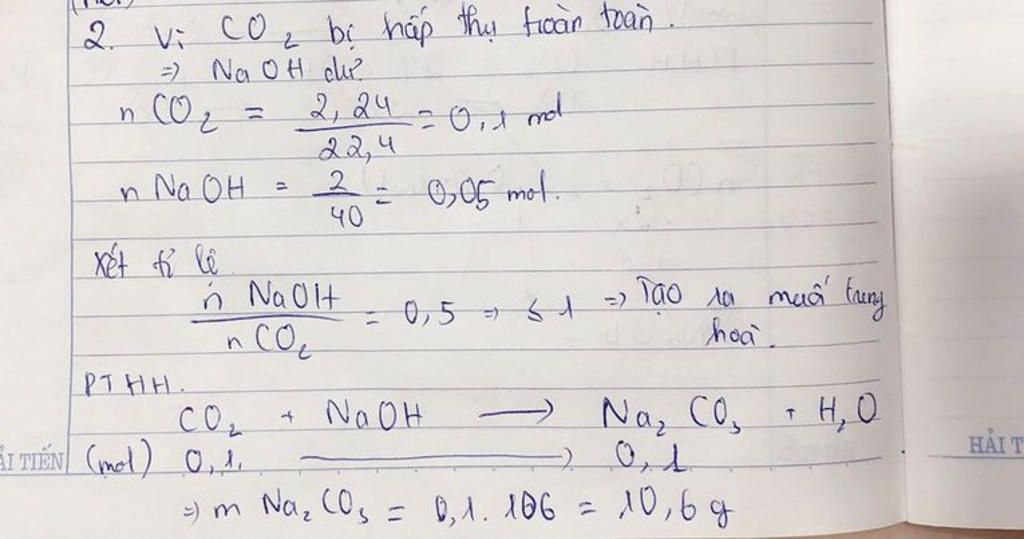 2. Vì CO2 bị hấp thụ hoàn toàn.
=> NaOH dư
n CO2 = 2,24 / 22,4 = 0,1 mol
n NaOH = 2 / 40 = 0,05 mol.
Xét tỉ lệ
n NaOH / n CO2 = 0,5 => ≤ 1 => Tạo ra muối trung
hoà.
PTHH.
CO2 + NaOH → Na2CO3 + H2O
ẢI TIẾN (mol) 0,1. → 0,1 HẢI T
=> m Na2CO3 = 0,1. 106 = 10,6 g